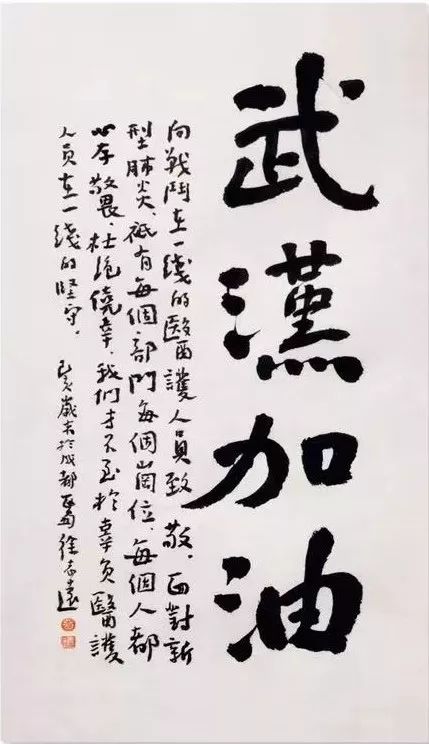 武漢加油
向戰鬥在一綫的醫護人員致敬，面對新
型肺炎，祇有每個部門每個崗位，每個人都
心存敬畏，杜絕僥幸，我们才不至於辜負醫護
人员在一綫的堅守。
己亥歲末於成都
徐志遠